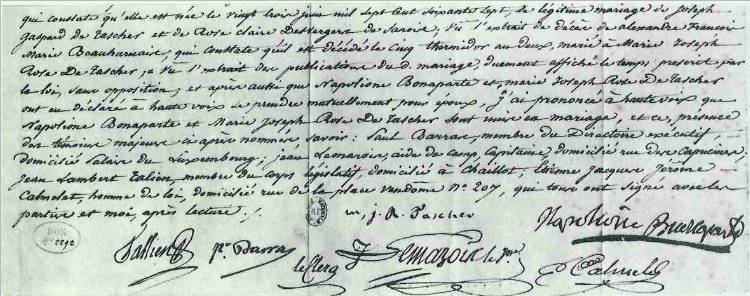 qui constate qu'elle est née le vingt trois juin mil sept cent soixante sept, de légitime mariage de joseph
Gaspard de tascher et de Rose claire Desvergers de Sanois; vu l'extrait de décès de alexandre francois
Marie Beauharnais, qui constate qu'il est décédé le cinq thermidor an deux, marié à Marie Joseph
Rose De tascher; vu l'extrait des publications du d. mariage duement affiché le temps prescrit par
la loi, sans opposition; et après aussi que Napolione Bonaparte et marie Joseph Rose De tascher
ont eu déclaré à haute voix se prendre mutuellement pour époux. J'ai prononcé à haute voix que
Napolione Bonaparte et Marie Joseph Rose De Tascher sont unis en mariage, et ce, présence
des témoins majeurs ci après nommés, savoir: Paul Barras, membre du Directoire exécutif,
domicilié Palais du Luxembourg; jean Lemarois, aide de camp, capitaine domicilié rue des capucines;
jean Lambert Talien, membre du corps législatif domicilié à Chaillot; Etienne Jacques Jérôme
Calmelet, homme de loi, domicilié rue de la place vendome N°. 207, qui tous ont signé avec les
parties et moi, après lecture ./.
m, j. R. Tascher
Napolione Buonaparte
DON
N° 2292
Tallien
P. Barras
leClerq
J Lemarois le Jne
Calmelet